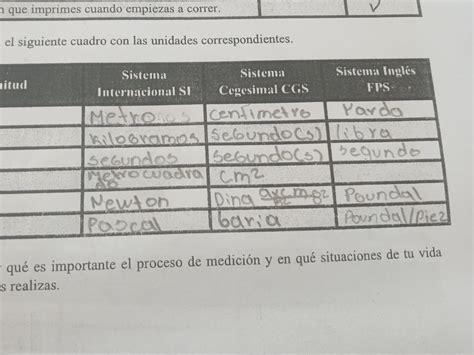 que imprimes cuando empiezas a correr.
el siguiente cuadro con las unidades correspondientes.
nitud Sistema Internacional SI Sistema Cegesimal CGS Sistema Inglés FPS
Metro centímetro Yarda
Kilogramos Segundo(s) libra
Segundos Segundo(s) segundo
Metro cuadrado cm2
Newton Dina Poundal
Pascal baria Poundal/Pie2
qué es importante el proceso de medición y en qué situaciones de tu vida
s realizas.